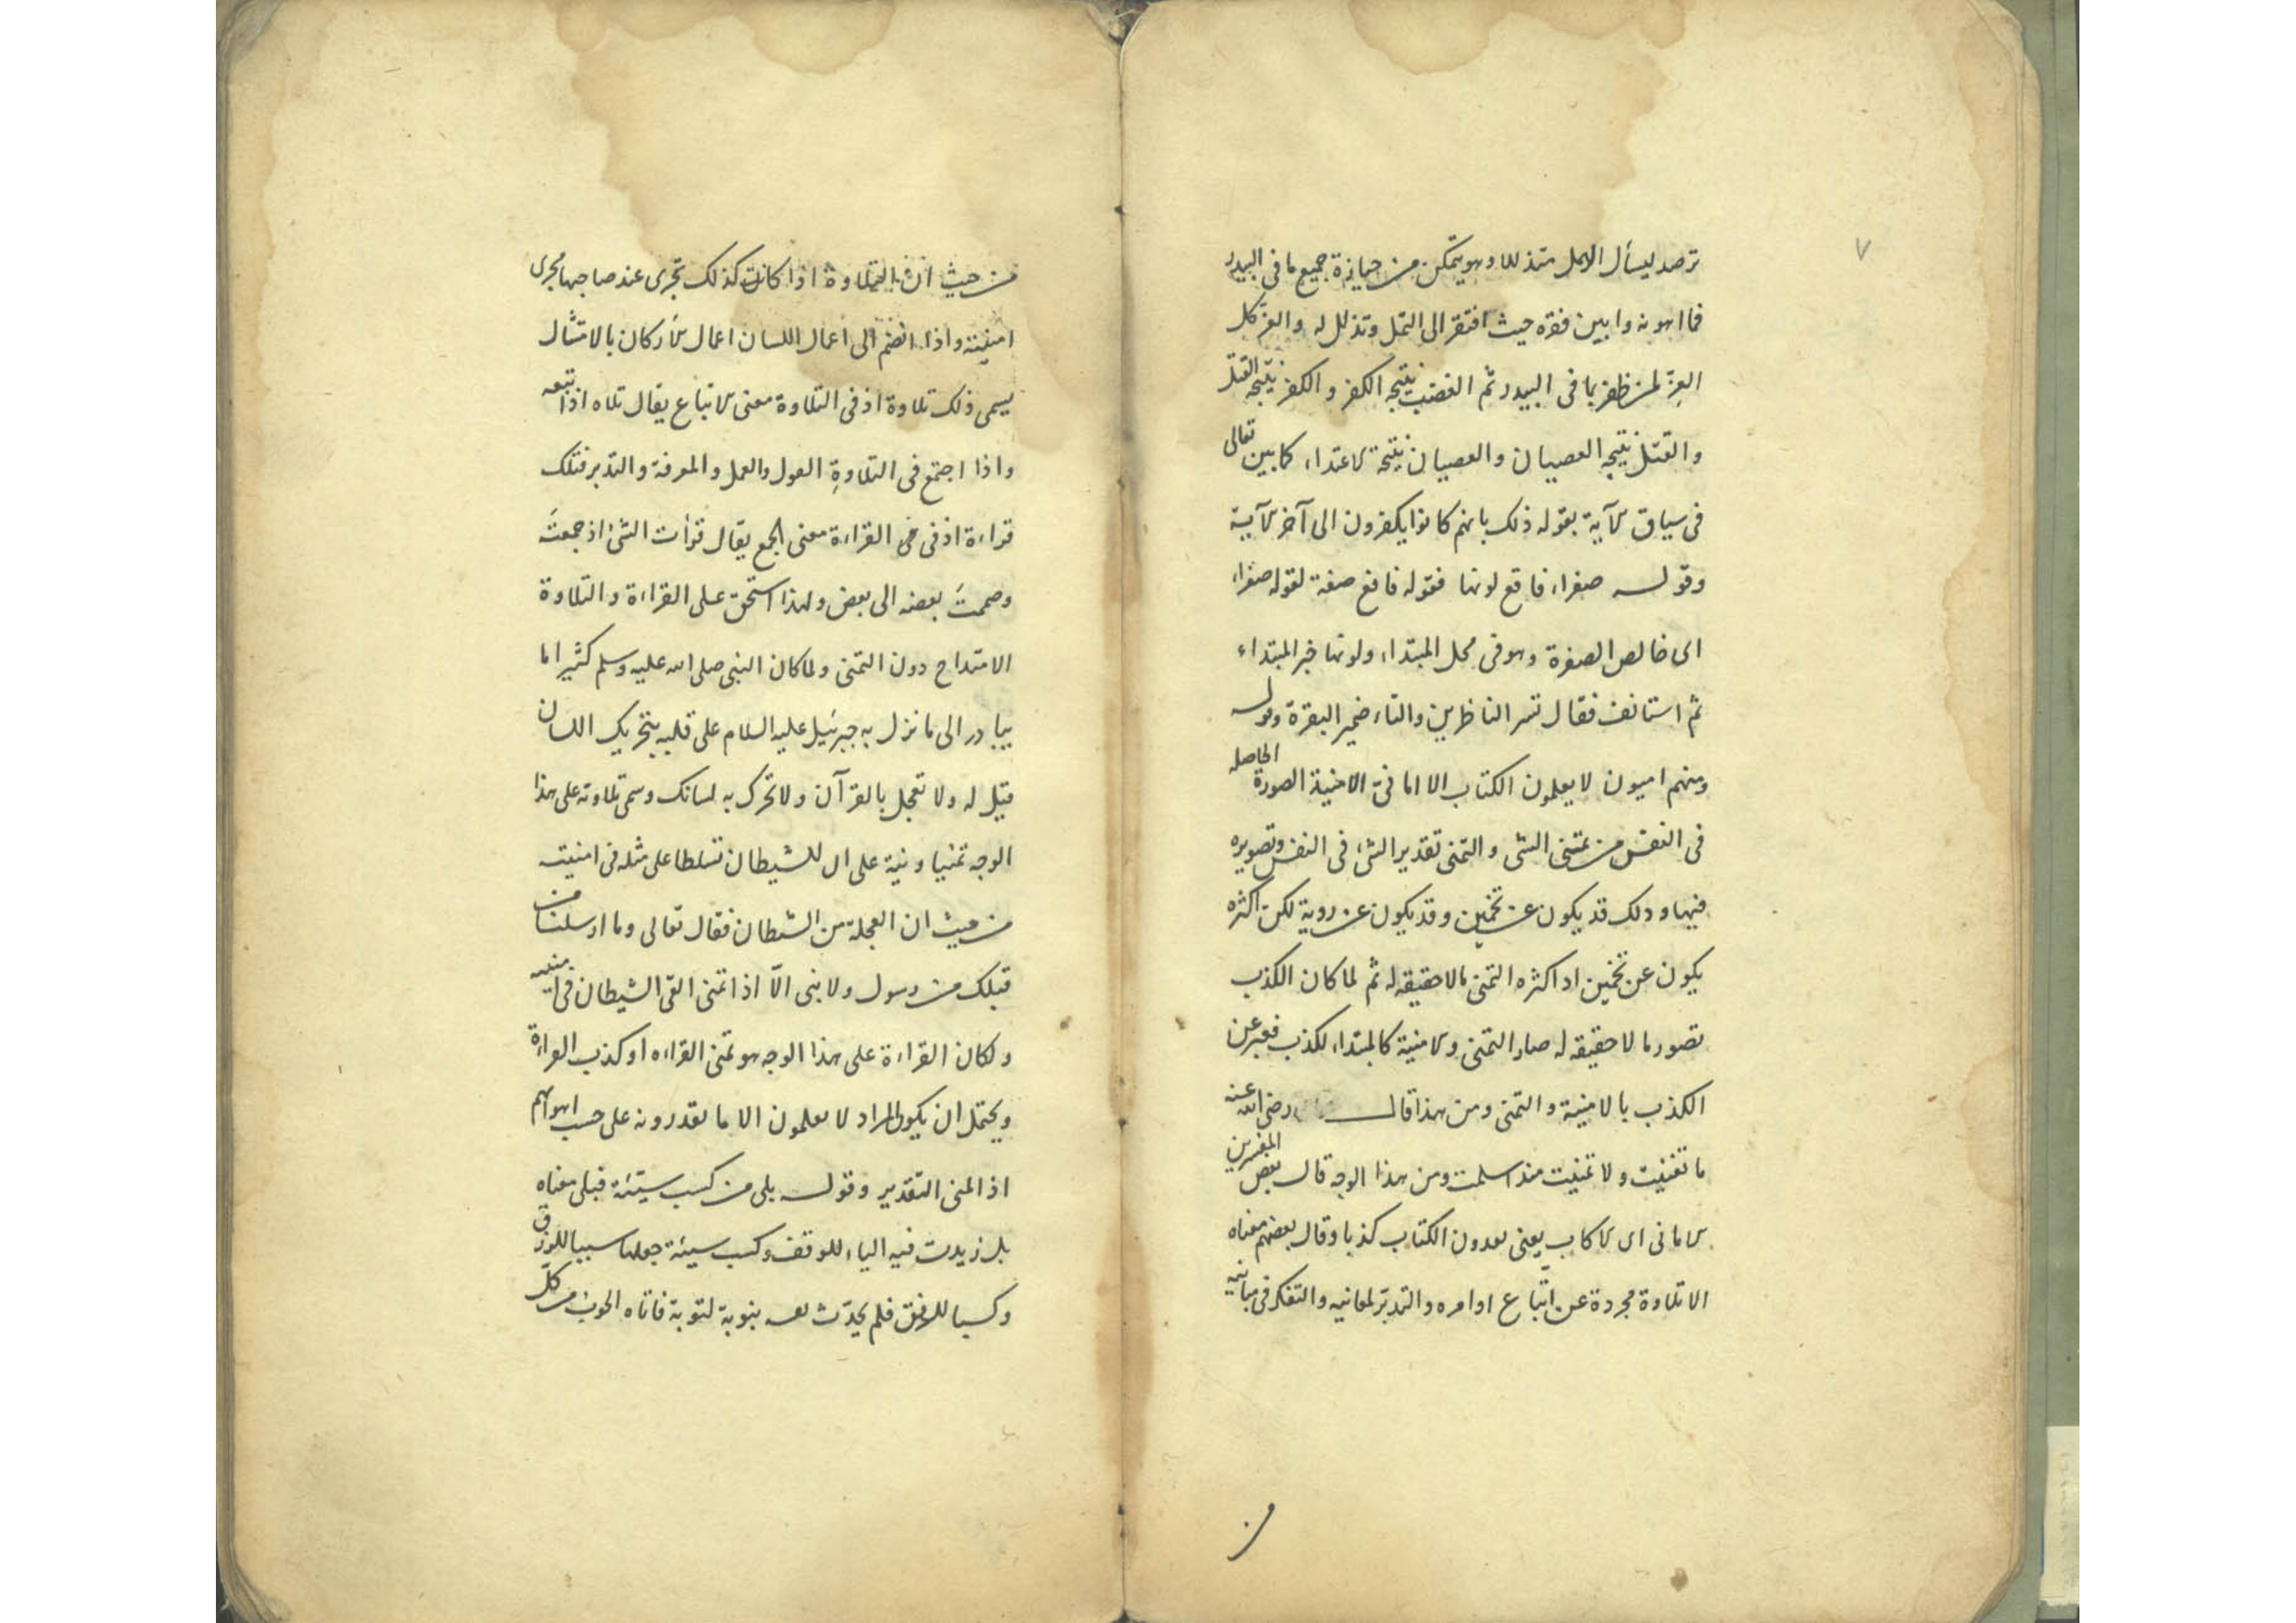 ٧
ترصد ليسأل الامل متذللا وهو يتمكن من حيازة جميع ما فى البيدر
فما اهونه وابين فقره حيث افتقر الى النمل وتذلل له والعز كل
العز لمن ظفر بما فى البيدر ثم الغضب نتيجه الكفر والكفر نتيجه القتل
والقتل نتيجه العصيان والعصيان نتيجة الاعتداء كما بين تعالى
فى سياق الآية بقوله ذلك بانهم كانوا يكفرون الى آخر الآية
وقوله صفراء فاقع لونها فقوله فاقع صفة لقوله صفراء
اى خالص الصفرة وهو فى محل المبتداء ولونها خبر المبتداء
ثم استانف فقال تسر الناظرين والتاء ضمير البقرة وقوله
ومنهم اميون لا يعلمون الكتاب الا امانى الامنية الصورة الحاصله
فى النفس من تمنى الشى والتمنى تقدير الشىء فى النفس وتصويره
فيها وذلك قد يكون عن تخمين وقد يكون عن روية لكن اكثره
يكون عن تخمين اذ اكثره التمنى مالا حقيقه له ثم لما كان الكذب
تصور ما لا حقيقه له صار التمنى والامنية كالمبتداء لكذب فعبر عن
الكذب بالامنية والتمنى ومن هذا قال رضى الله عنه
ما تغنيت ولا تمنيت منذ اسلمت ومن هذا الوجه قال بعض المفسرين
الامانى اى الاكاب يعنى يعدون الكتاب كذبا وقال بعضهم معناه
الا تلاوة مجردة عن اتباع اوامره والتدبر لمعانيه والتفكر فى مبانيه
من
من حيث ان التلاوة اذا كانت كذلك تجرى عند صاحبها مجرى
امنيته واذا انضم الى اعمال اللسان اعمال الأركان بالامتثال
يسمى ذلك تلاوة اذ فى التلاوة معنى الاتباع يقال تلاه اذا تبعه
واذا اجتمع فى التلاوة القول والعمل والمعرفة والتدبر فتلك
قراءة اذ فى القراءة معنى الجمع يقال قرأت الشئ اذ جمعت
وضممت بعضه الى بعض ولهذا استحق على القراءة والتلاوة
الامتداح دون التمنى ولما كان النبى صلى الله عليه وسلم كثيرا ما
يبادر الى ما نزل به جبرئيل عليه السلام على قلبه بتحريك اللسان
قيل له ولا تعجل بالقرآن ولا تحرك به لسانك وسمى تلاوته على هذا
الوجه تمنيا ونبه على ان للشيطان تسلطا على مثله فى امنيته
من حيث ان العجلة من الشيطان فقال تعالى وما ارسلنا من
قبلك من رسول ولا نبى الّا اذا تمنى القى الشيطان فى امنيته
ولكان القراءة على هذا الوجه هو تمنى القراءه او كذب القراءة
ويحتمل ان يكون المراد لا يعلمون الا ما يقدرونه على حسب اهوائهم
اذ المنى التقدير وقوله بلى من كسب سيّئة فبلى معناه
بل زيدت فيه الياء للوقف وكسب سيئة جعلها سببا للرزق
وكسبا للرفق فلم يحدّث نفسه بتوبة فاتاه الخوف من كل